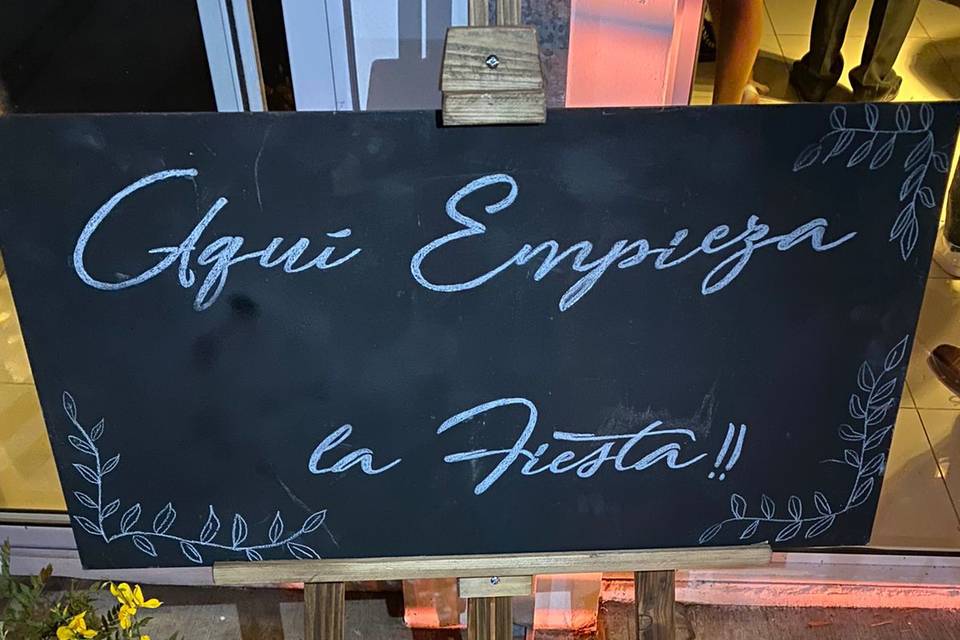 Aquí Empieza
la Fiesta!!